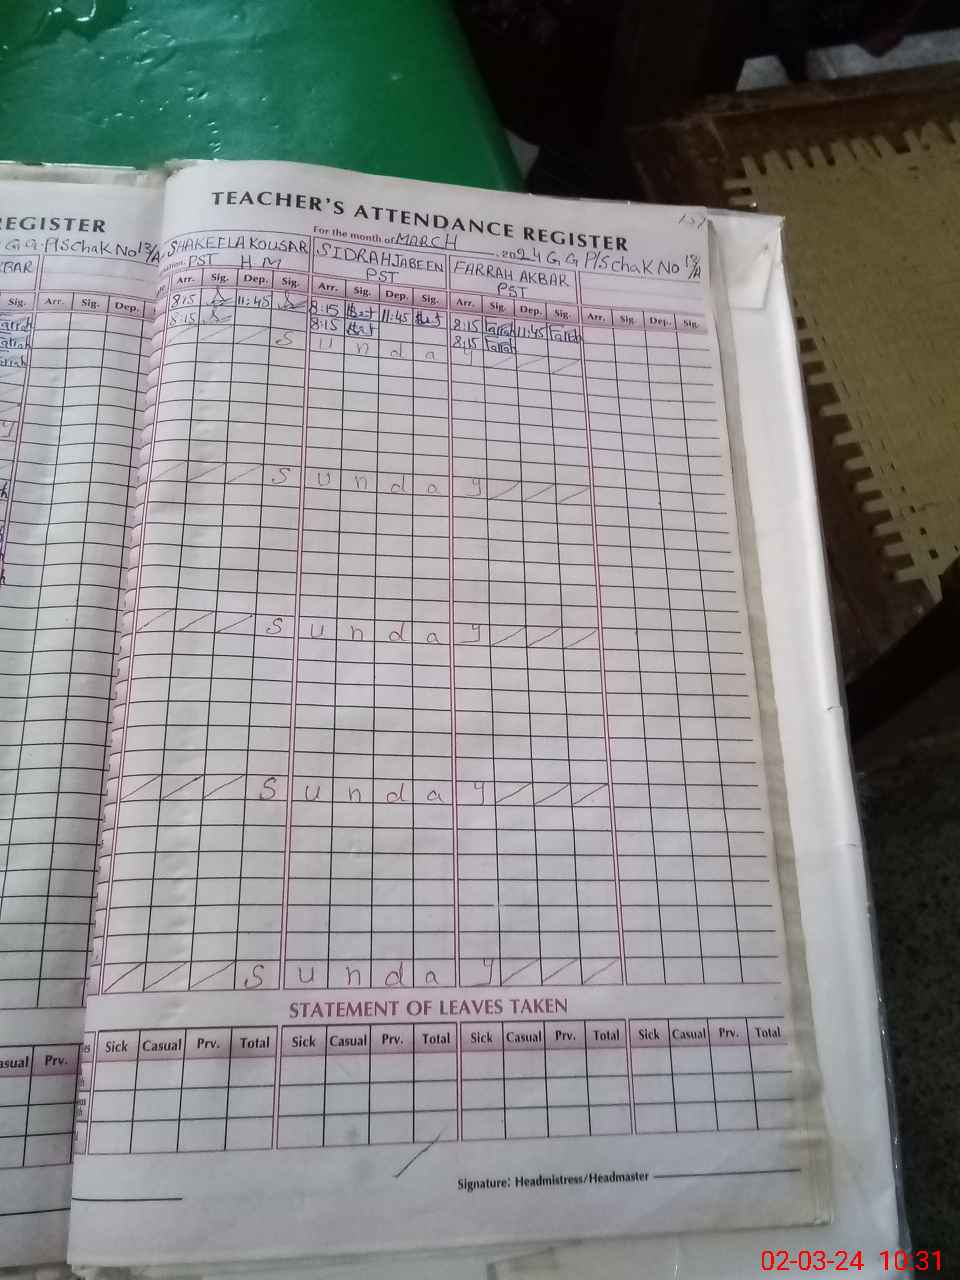 REGISTER
TEACHER'S ATTENDANCE REGISTER
For the month of MARCH 2024 G.G P/S Chak No 13/A
G.G. P/S Chak No 13/A
SHAKEELA KOUSAR SIDRAH JABEEN FARRAH AKBAR
PST H.M PST PST
Arr. Sig. Dep. Sig. Arr. Sig. Dep. Sig. Arr. Sig. Dep. Sig. Arr. Sig. Dep. Sig.
Sig. Arr. Sig. Dep.
8:15 11:45 8:15 11:45 8:15 Farrah 11:45 Farrah
8:15 8:15 8:15 Farrah
S u n d a y
S u n d a y
S u n d a y
S u n d a y
S u n d a y
STATEMENT OF LEAVES TAKEN
Sick Casual Prv. Total Sick Casual Prv. Total Sick Casual Prv. Total Sick Casual Prv. Total
Prv.
Signature: Headmistress/Headmaster
02-03-24 10:31